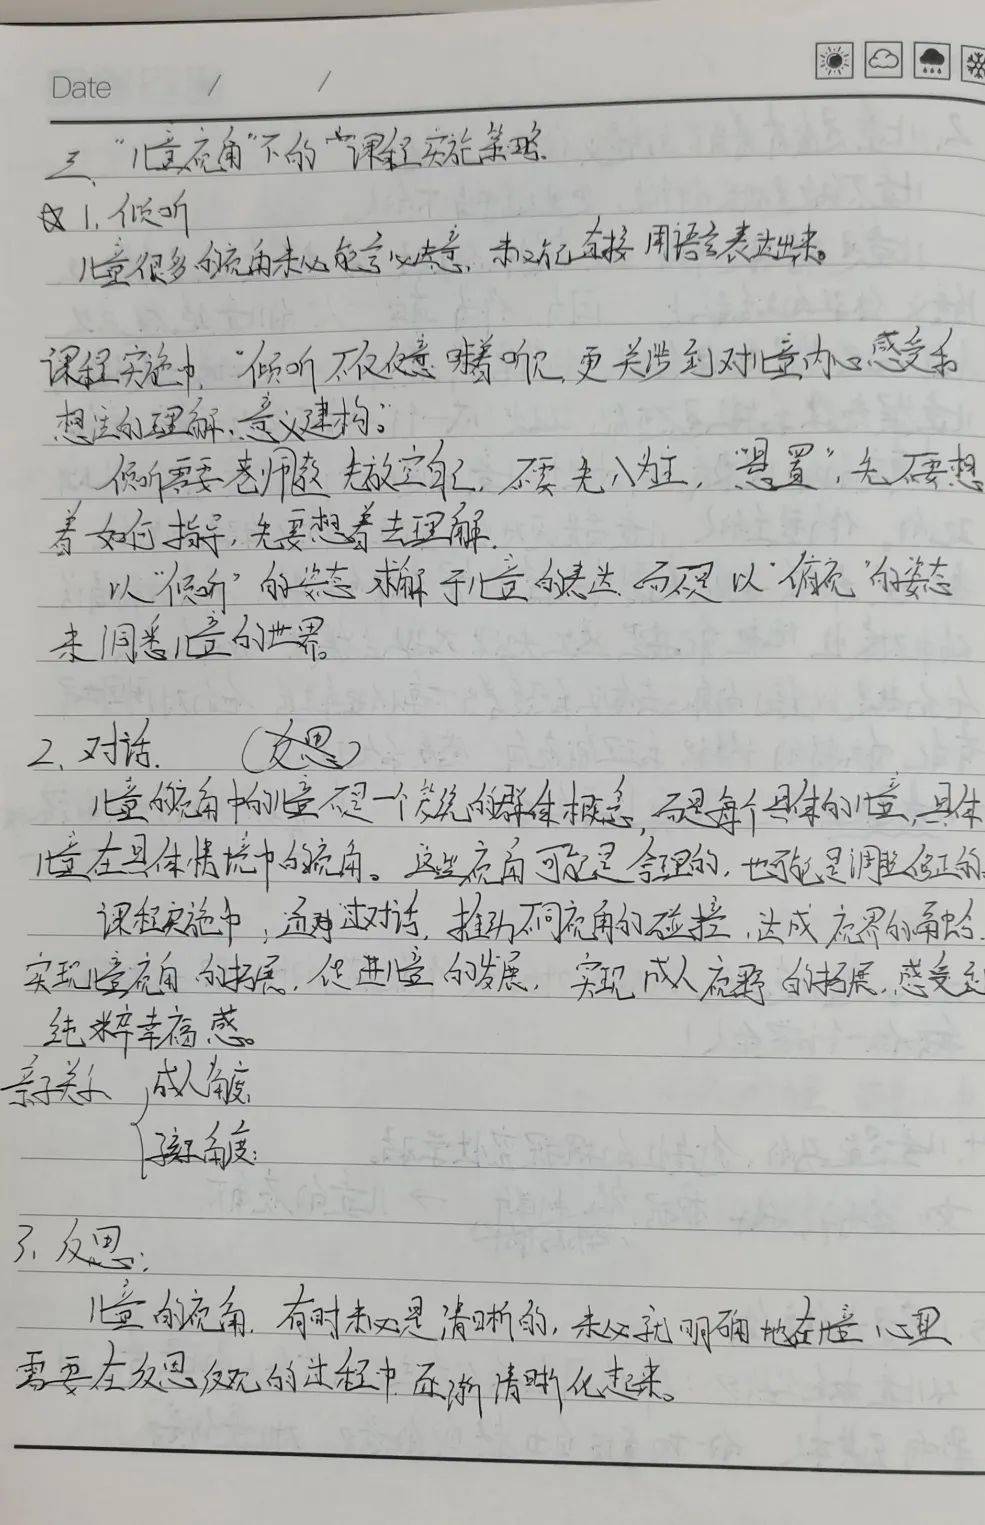 Date / /
三、"儿童视角"下的课程实施策略.
1、倾听
儿童很多的视角未必能言必达意，未必能直接用语言表达出来。
课程实施中，"倾听不仅仅意味着听见，更关涉到对儿童内心感受和
想法的理解、意义建构。"
倾听需要老师 先放空自己，不要先入为主，"悬置"，先不要想
着如何指导，先要想着去理解.
以"倾听"的姿态求解于儿童的表达 而不是以"俯视"的姿态
来洞悉儿童的世界。
2、对话. (反思)
儿童的视角中的儿童不是一个笼统的群体概念，而是每个具体的儿童，具体
儿童在具体情境中的视角。这些视角可能是合理的，也可能是调整修正的.
课程实施中，通过对话，推动不同视角的碰撞，达成视界的融合.
实现儿童视角的拓展，促进儿童的发展，实现成人视野的拓展，感受到
纯粹幸福感。
亲子关系 成人角度:
孩子角度:
3、反思:
儿童的视角. 有时未必是清晰的，未必就明确地在儿童心里
需要在反思反观的过程中逐渐清晰化起来。